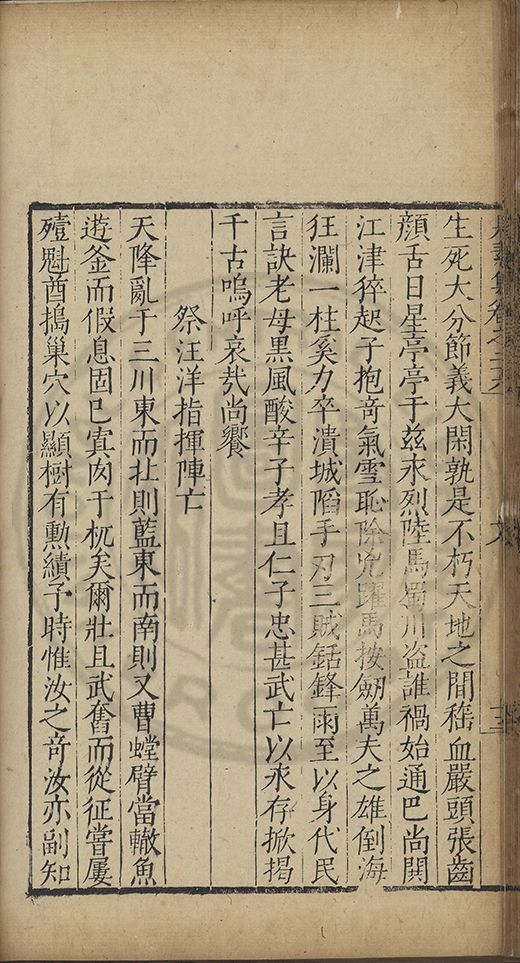 生死大分節義大閑孰是不朽天地之間嵇血嚴頭張齒
顔舌日星亭亭于兹永烈陸馬蜀川盗誰禍始通巴尚開
江津猝起子抱竒氣雪耻除兇躍馬按劒萬夫之雄倒海
狂瀾一柱奚力卒潰城䧟手刃三賊銛鋒雨至以身代民
言訣老母黒風酸辛子孝且仁子忠甚武亡以永存掀掲
千古嗚呼哀㢤尚饗
祭汪洋指揮陣亡
天降亂于三川東而北則藍東而南則又曹螳臂當轍魚
遊釜而假息固已寘肉于杌矣爾壯且武奮而從征嘗屢
殪魁酋搗巢穴以顯樹有勲績予時惟汝之竒汝亦副知
文